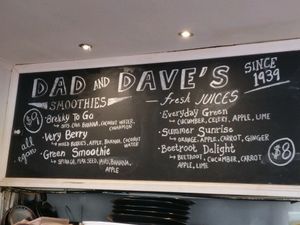 DAD AND DAVE'S
SINCE 1939
SMOOTHIES
$9
all vegan
Brekky To Go
↳ OATS, CHIA, BANANA, COCONUT WATER, CINNAMON
Very Berry
↳ MIXED BERRIES, APPLE, BANANA, COCONUT WATER
Green Smoothie
↳ SPINAGE, BANANA, APPLE
fresh JUICES
Everyday Green
↳ CUCUMBER, CELERY, APPLE, LIME
Summer Sunrise
↳ ORANGE, APPLE, CARROT, GINGER
Beetroot Delight
↳ BEETROOT, CUCUMBER, CARROT, APPLE, LIME
$8